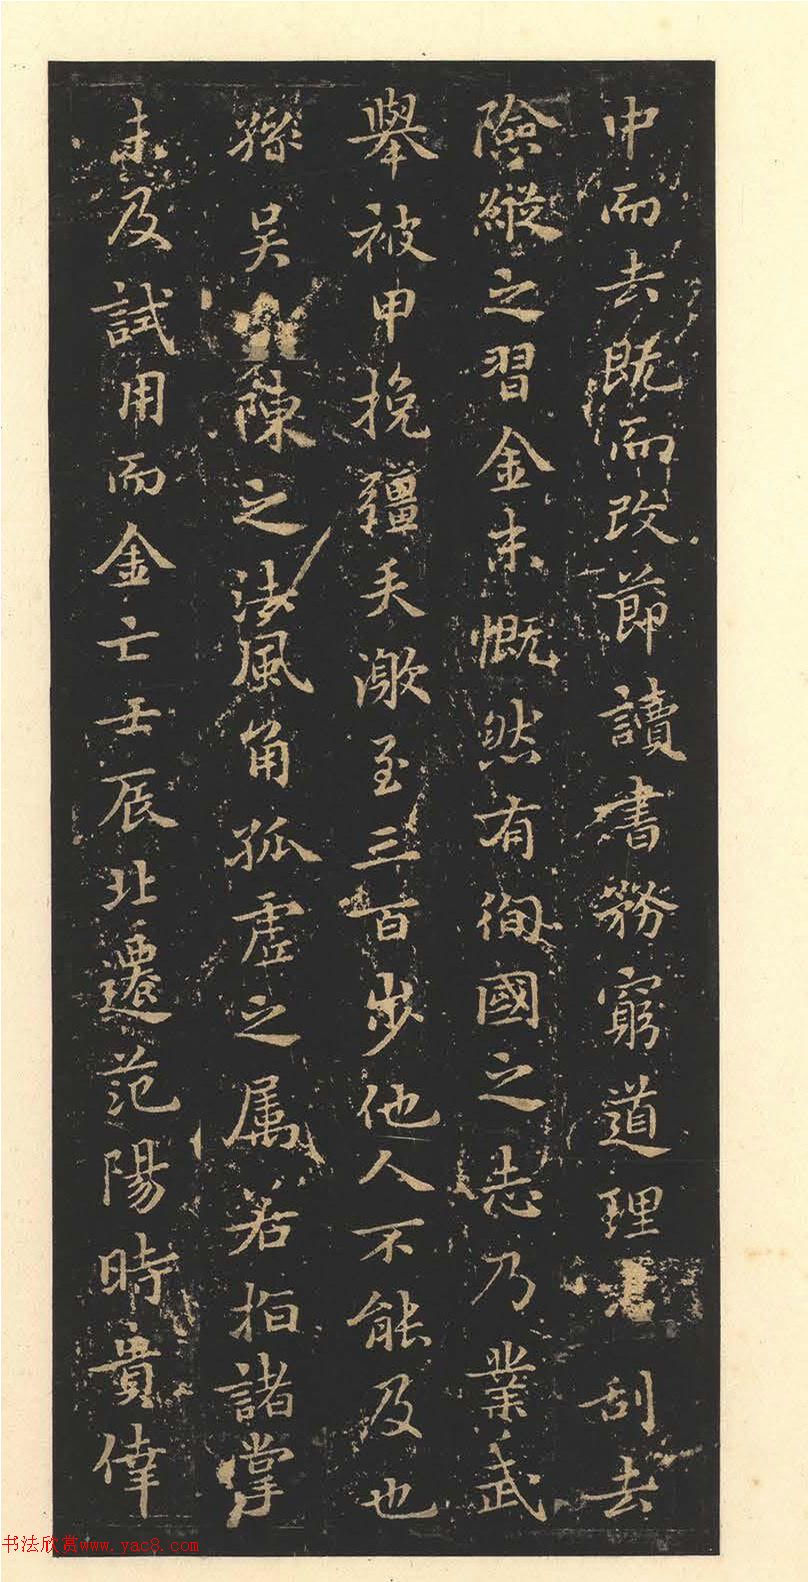 中而去既而改節讀書務窮道理刮去
險縱之習金末慨然有徇國之志乃業武
舉被甲挽彊矢激至三百步他人不能及也
孫吳陳之法風角孤虛之属若指諸掌
未及試用而金亡壬辰北遷范陽時貴倖
书法欣赏www.yac8.com